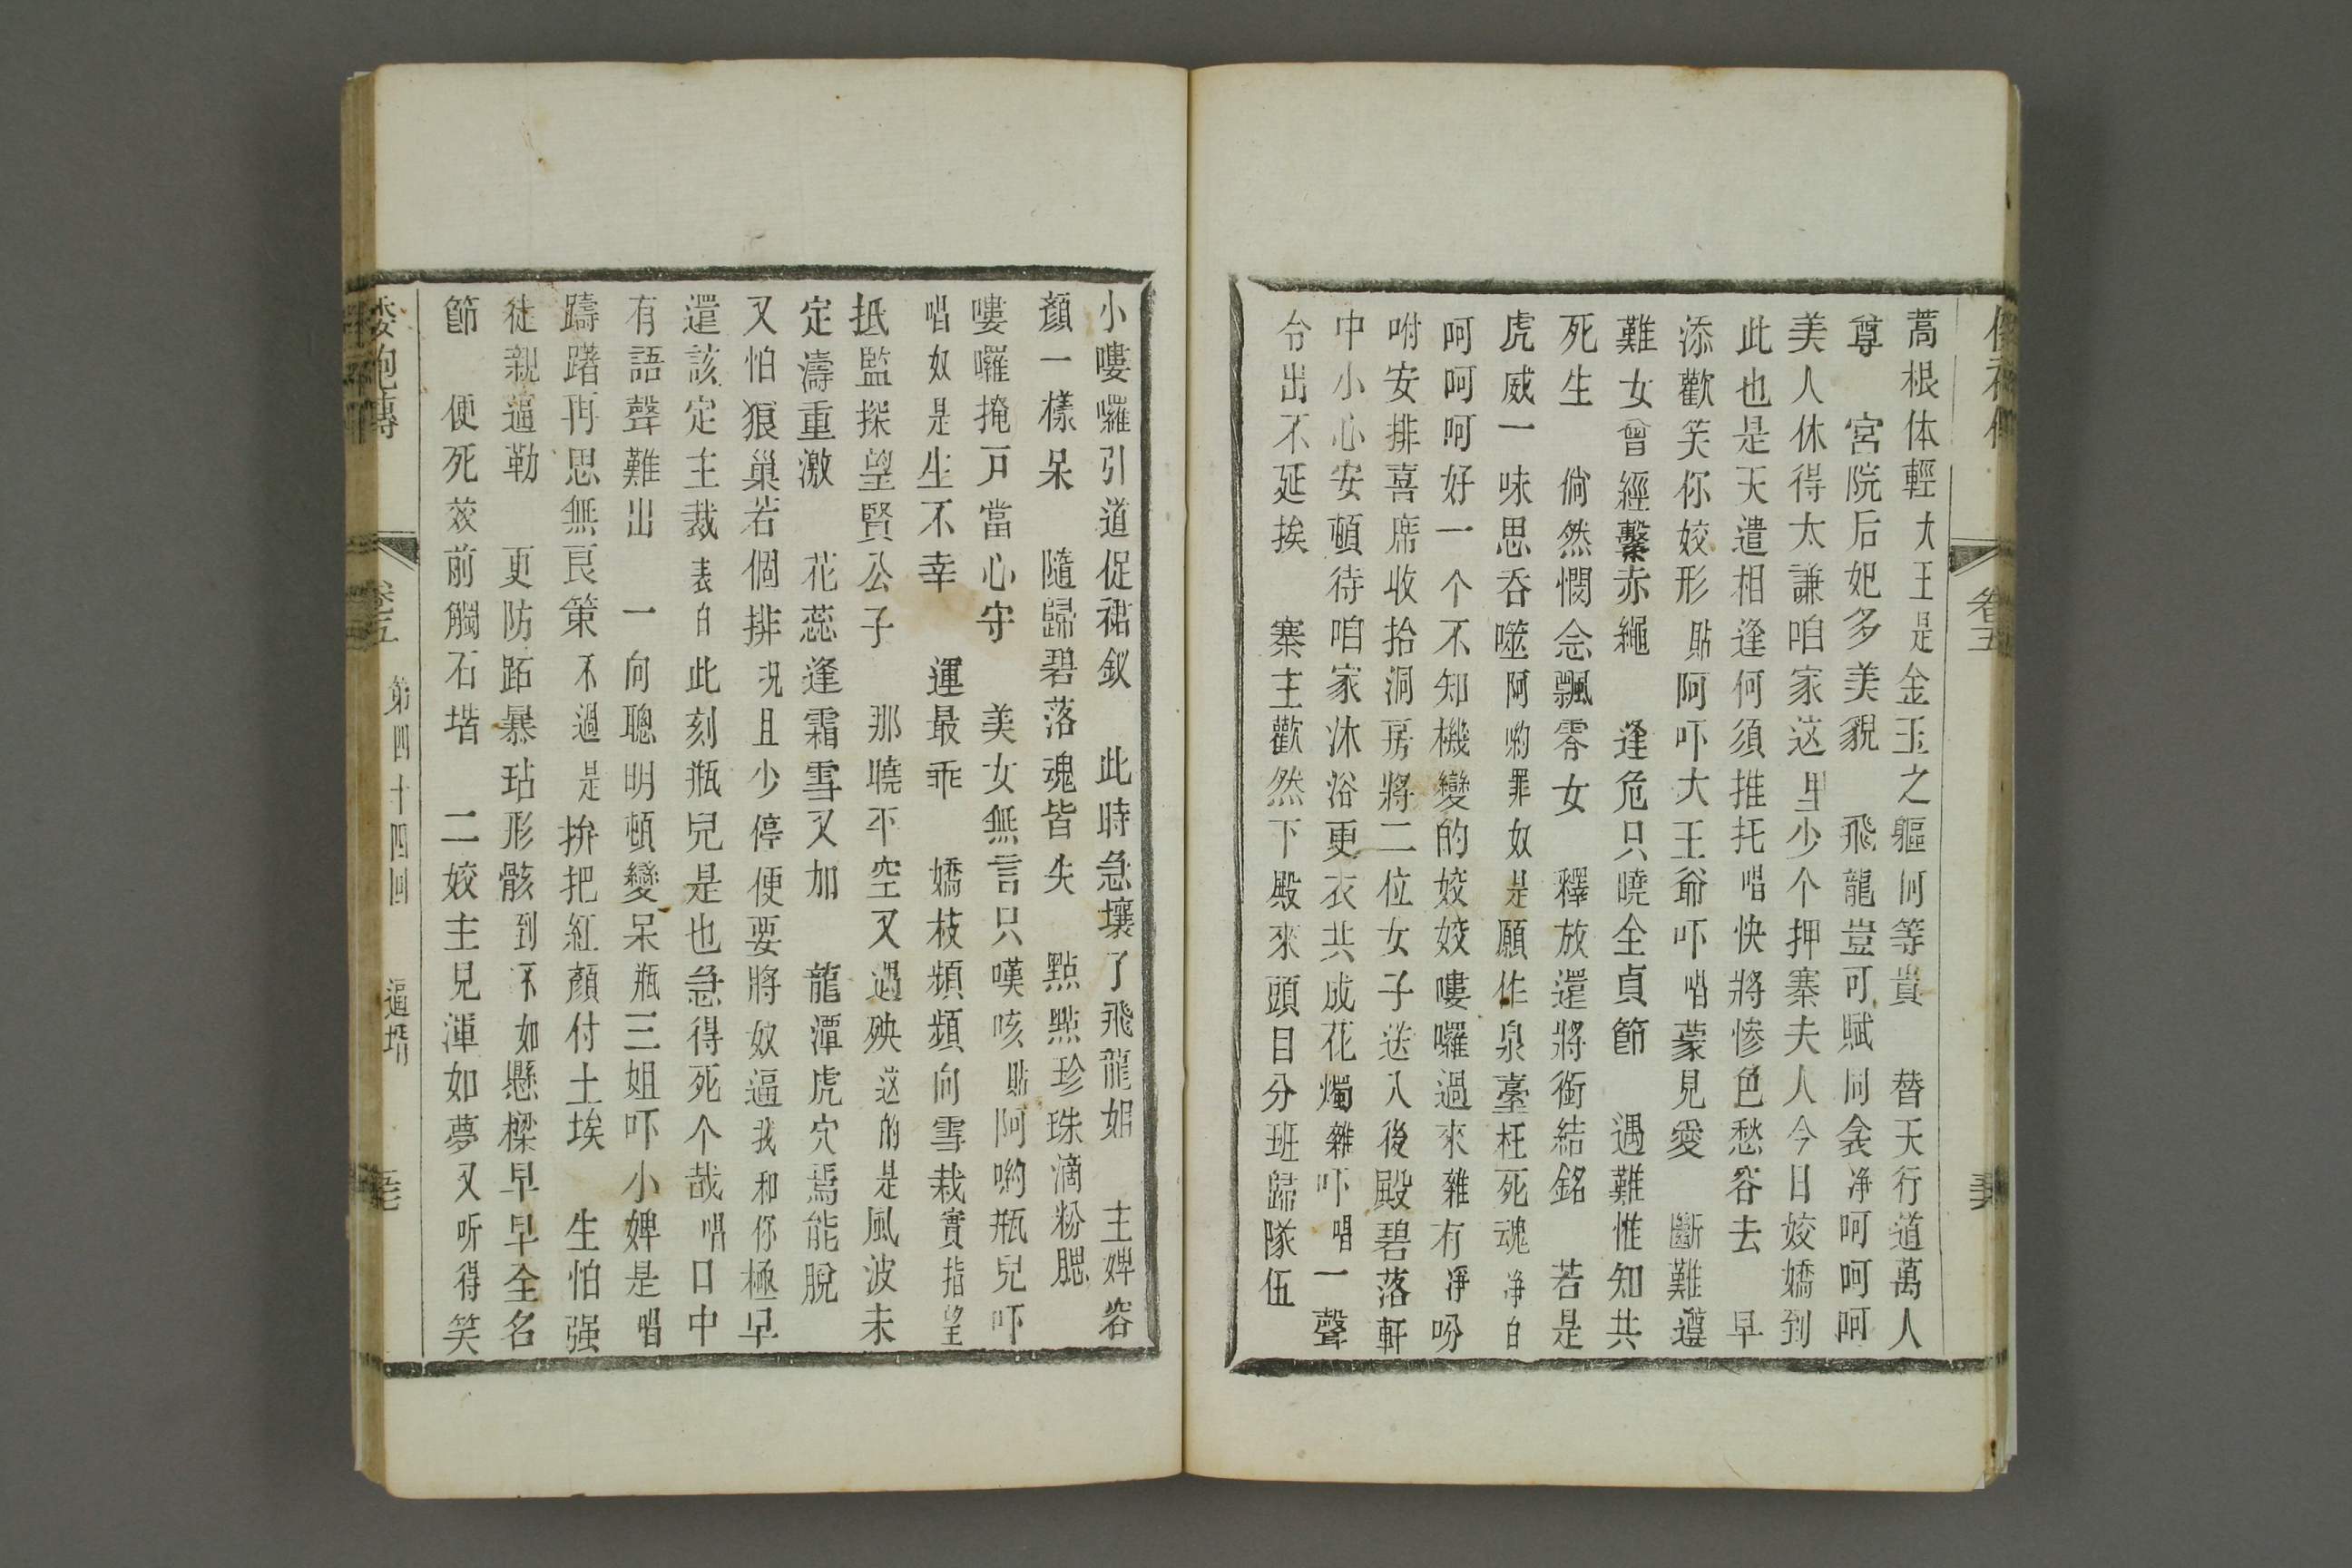 卷五
蒿根体輕大王是金玉之軀何等貴　替天行道萬人
尊　宮院后妃多美貌　飛龍豈可賦同衾净呵呵呵
美人休得太謙咱家这里少个押寨夫人今日姣嬌到
此也是天遣相逢何須推托唱快將慘色愁容去　早
添歡笑你姣形貼阿吓大王爺吓唱蒙見愛　斷難遵
難女曾經繫赤繩　逢危只曉全貞節　遇難惟知共
死生　倘然憫念飄零女　釋放還將銜結銘　若是
虎威一味思吞噬阿喲罪奴是願作泉臺枉死魂净白
呵呵呵好一个不知機變的姣姣嘍囉過來雜有净吩
咐安排喜席收拾洞房將二位女子送入後殿碧落軒
中小心安頓待咱家沐浴更衣共成花燭雜吓唱一聲
令出不延挨　寨主歡然下殿來頭目分班歸隊伍
小嘍囉引道促裙釵　此時急壞了飛龍姐　主婢容
顏一樣呆　隨歸碧落魂皆失　點點珍珠滴粉腮
嘍囉掩戸當心守　美女無言只嘆咳貼阿喲瓶兒吓
唱奴是生不幸　運最乖　嬌枝頻頻向雪栽實指望
抵監探望賢公子　那曉平空又遇殃这的是風波未
定濤重激　花蕊逢霜雪又加　龍潭虎穴焉能脫
又怕狼巢若個排况且少停便要將奴逼我和你極早
還該定主裁表白此刻瓶兒是也急得死个哉唱口中
有語聲難出　一向聰明頓變呆瓶三姐吓小婢是唱
躊躇再思無良策不過是拚把紅顏付土埃　生怕强
徒親逼勒　更防跖暴玷形骸到不如懸樑早早全名
節　便死效前觸石堦　二姣主見渾如夢又听得笑
倭袍傳　卷五　第四十四回　逼壻